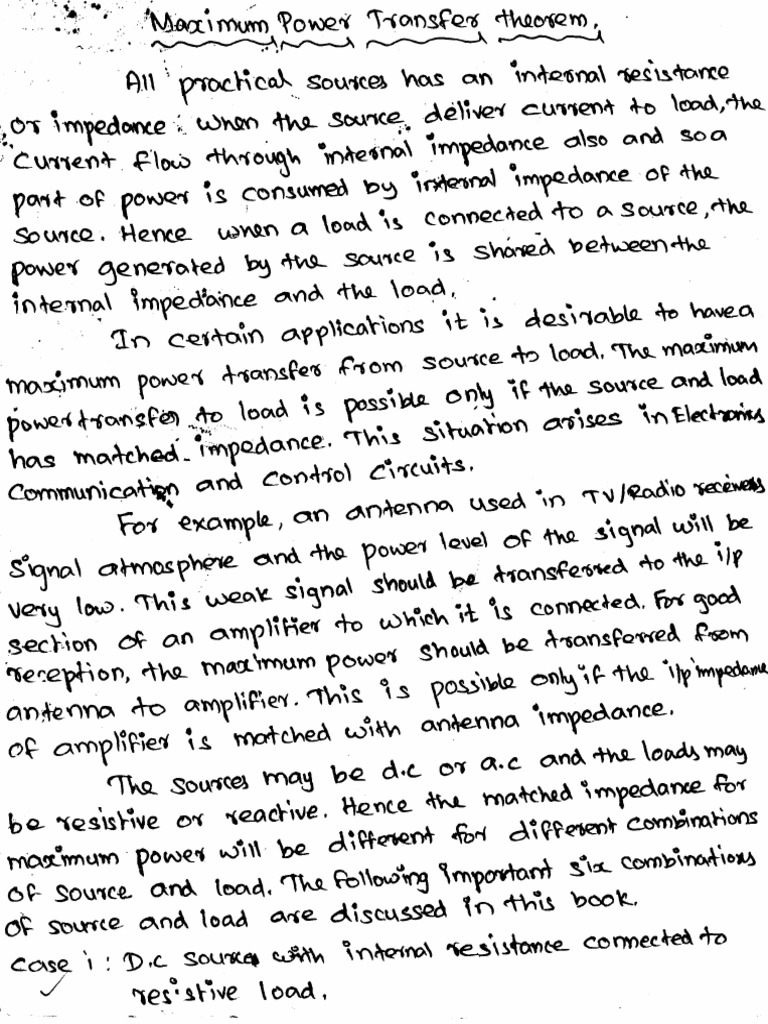 Maximum Power Transfer theorem.
All practical sources has an internal resistance
or impedance. When the source deliver current to load, the
current flow through internal impedance also and so a
part of power is consumed by internal impedance of the
source. Hence when a load is connected to a source, the
power generated by the source is shared between the
internal impedance and the load.
In certain applications it is desirable to have a
maximum power transfer from source to load. The maximum
power transfer to load is possible only if the source and load
has matched impedance. This situation arises in Electronics
Communication and control circuits.
For example, an antenna used in TV/Radio receivers
signal atmosphere and the power level of the signal will be
very low. This weak signal should be transferred to the i/p
section of an amplifier to which it is connected. For good
reception, the maximum power should be transferred from
antenna to amplifier. This is possible only if the i/p impedance
of amplifier is matched with antenna impedance.
The sources may be d.c or a.c and the loads may
be resistive or reactive. Hence the matched impedance for
maximum power will be different for different combinations
of source and load. The following important six combinations
of source and load are discussed in this book.
case i : D.c source with internal resistance connected to
resistive load.